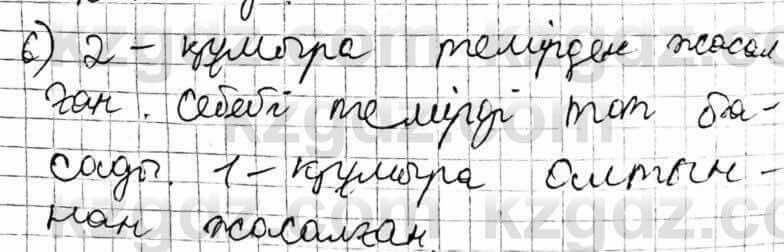 б) 2 - құмыра темірден жасал
ған. Себебі темірді тот ба-
сады. 1 - құмыра алтын-
нан жасалған.